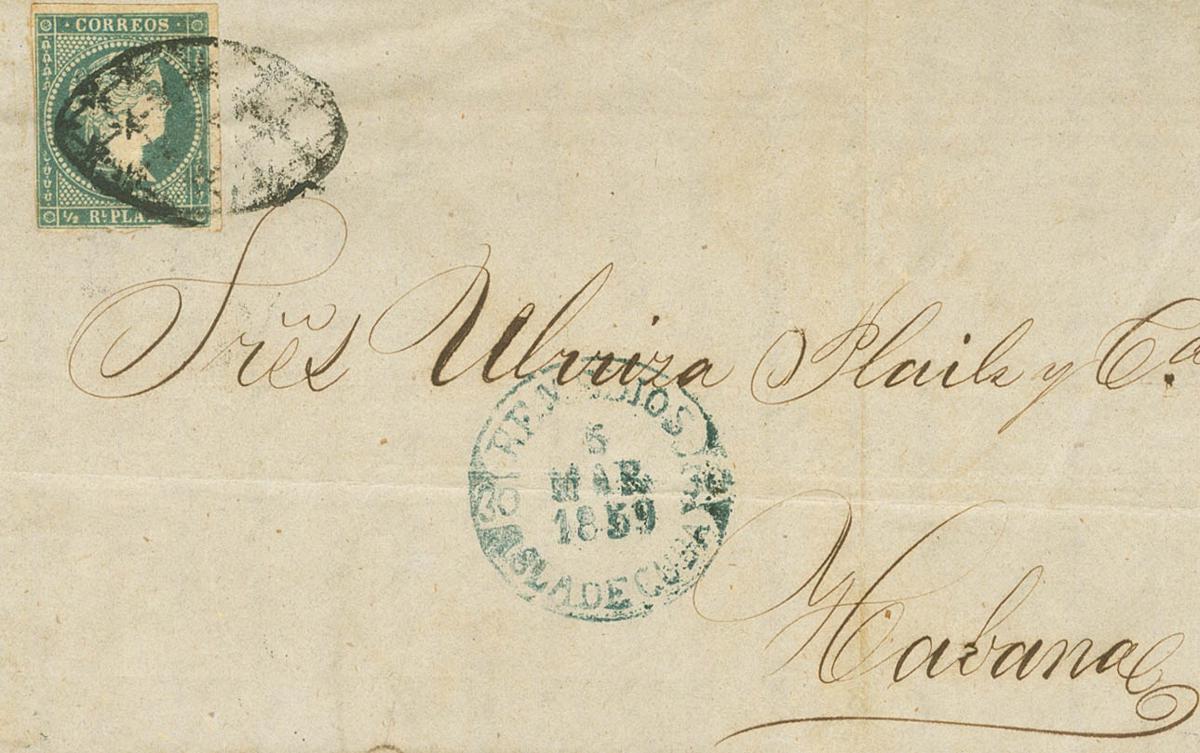 · CORREOS ·
½ Rˡ PLA
Sres Uriza Plails y Cª
REMEDIOS
5
MAR.
1859
30
30
ISLA DE CUBA
Habana